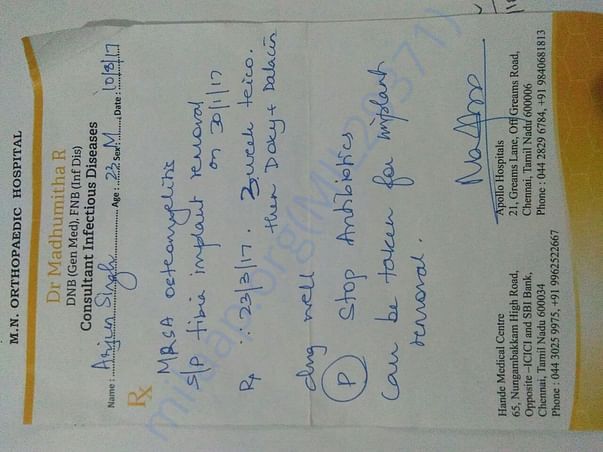 M.N. ORTHOPAEDIC HOSPITAL
Dr Madhumitha R
DNB (Gen Med), FNB (Inf Dis)
Consultant Infectious Diseases
Name : Arjun Singh Age : 23 Sex : M Date : 10/8/17
Rx
MRSA osteomyelitis
S/P tibia implant removal
on 30/1/17
Rx ∴ 23/3/17. 3 week teico.
then Doxy + Dalacin
dng well
(P) Stop Antibiotics
Can be taken for implant
removal.
Hande Medical Centre
65, Nungambakkam High Road,
Opposite –ICICI and SBI Bank,
Chennai, Tamil Nadu 600034
Phone : 044 3025 9975, +91 9962522667
Apollo Hospitals
21, Greams Lane, Off Greams Road,
Chennai, Tamil Nadu 600006
Phone : 044 2829 6784, +91 9840681813